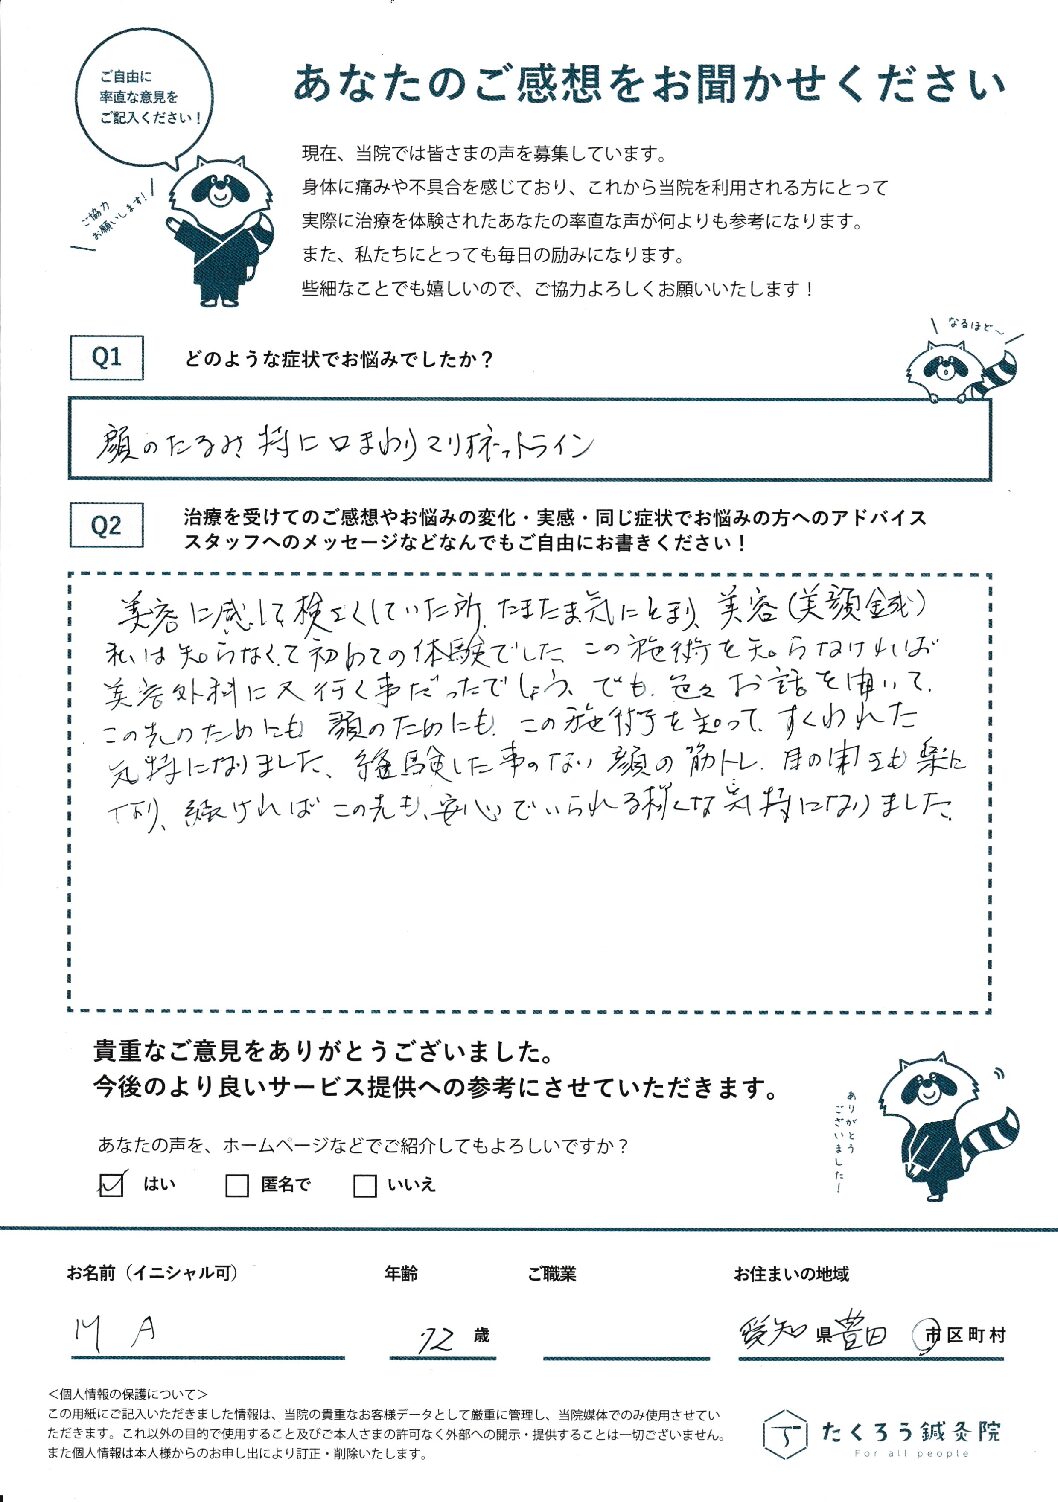 ご自由に
率直な意見を
ご記入ください！
あなたのご感想をお聞かせください
ご協力
お願いします！
現在、当院では皆さまの声を募集しています。
身体に痛みや不具合を感じており、これから当院を利用される方にとって
実際に治療を体験されたあなたの率直な声が何よりも参考になります。
また、私たちにとっても毎日の励みになります。
些細なことでも嬉しいので、ご協力よろしくお願いいたします！
なるほど〜
Q1 どのような症状でお悩みでしたか？
顔のたるみ 特に口まわりマリオネットライン
Q2 治療を受けてのご感想やお悩みの変化・実感・同じ症状でお悩みの方へのアドバイス
スタッフへのメッセージなどなんでもご自由にお書きください！
美容に感して検さくしていた所、たまたま気にとまり、美容（美顔鍼）
私は知らなくて初めての体験でした、この施術を知らなければ
美容外科に又行く事だったでしょう、でも、色々お話を聞いて、
この先のためにも 顔のためにも、この施術を知って、すくわれた
気持になりました、経験した事のない顔の筋トレ、目の開きも楽に
なり、続ければこの先も、安心でいられる様な気持になりました、
貴重なご意見をありがとうございました。
今後のより良いサービス提供への参考にさせていただきます。
ありがとう
ございました！
あなたの声を、ホームページなどでご紹介してもよろしいですか？
はい 匿名で いいえ
お名前（イニシャル可） 年齢 ご職業 お住まいの地域
M A 72 歳 愛知 県 豊田 市区町村
＜個人情報の保護について＞
この用紙にご記入いただきました情報は、当院の貴重なお客様データとして厳重に管理し、当院媒体でのみ使用させてい
ただきます。これ以外の目的で使用すること及びご本人さまの許可なく外部への開示・提供することは一切ございません。
また個人情報は本人様からのお申し出により訂正・削除いたします。
たくろう鍼灸院
For all people